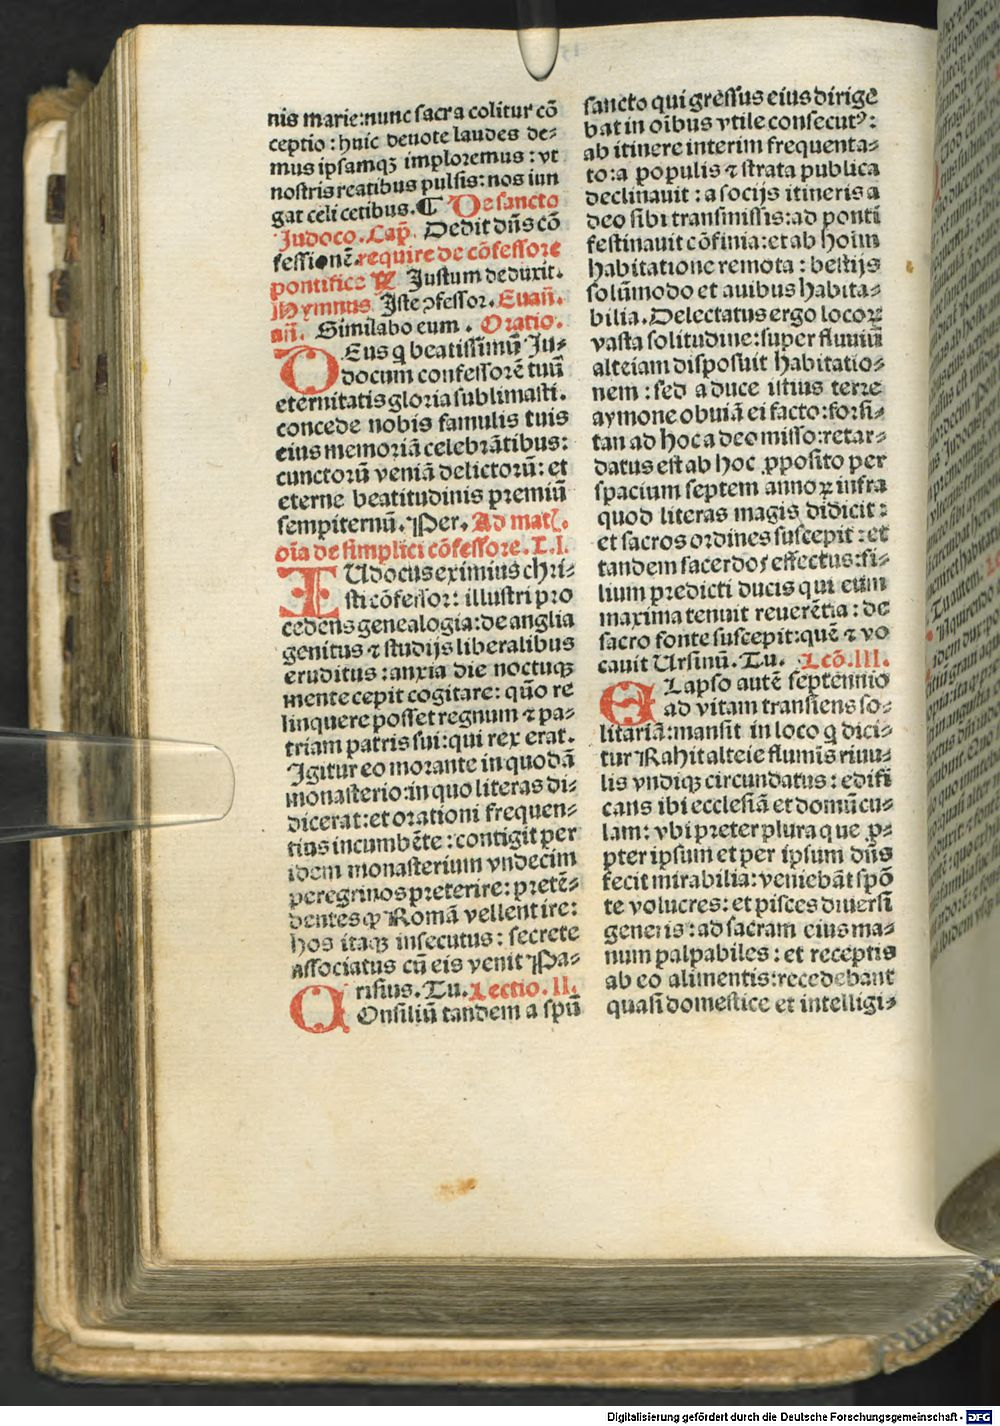 nis marie:nunc sacra colitur cō
ceptio : huic deuote laudes de⸗
mus ipsamqꝫ imploremus : vt
nostris reatibus pulsis: nos iun
gat celi cetibus. ⁋ De sancto
Judoco. Cap̄. Dedit dn̄s cō
fessionē. require de cōfessore
pontifice ℣ Justum deduxit.
Hymnus Iste ꝯfessor. Euan̄.
an̄. Similabo eum . Oratio.
DEus q̄ beatissimū Ju⸗
docum confessorē tuū
eternitatis gloria sublimasti.
concede nobis famulis tuis
eius memoriā celebrātibus:
cunctorū veniā delictorū: et
eterne beatitudinis premiū
sempiternū. Per. Ad mat̄.
oīa de simplici cōfessore. L. I.
IUdocus eximius chri⸗
sti cōfessor: illustri pro
cedens genealogia: de anglia
genitus ⁊ studijs liberalibus
eruditus : anxia die noctuqꝫ
mente cepit cogitare: quō re
linquere posset regnum ⁊ pa⸗
triam patris sui: qui rex erat.
Igitur eo morante in quodā
monasterio:in quo literas di⸗
dicerat: et orationi frequen⸗
tius incumbēte : contigit per
idem monasterium vndecim
peregrinos preterire: pretē⸗
dentes ꝙ Romā vellent ire:
hos itaqꝫ insecutus : secrete
associatus cū eis venit Pa⸗
risius. Tu. Lectio. II.
COnsiliū tandem a spū
sancto qui gressus eius dirige
bat in oībus vtile consecutꝰ:
ab itinere interim frequenta⸗
to: a populis ⁊ strata publica
declinauit : a socijs itineris a
deo sibi transmissis: ad ponti
festinauit cōfinia: et ab hoīm
habitatione remota : bestijs
solūmodo et auibus habita⸗
bilia. Delectatus ergo locoꝝ
vasta solitudine: super fluuiū
alteiam disposuit habitatio⸗
nem : sed a duce istius terre
aymone obuiā ei facto: forsi⸗
tan ad hoc a deo misso: retar⸗
datus est ab hoc ꝓposito per
spacium septem annoꝝ infra
quod literas magis didicit :
et sacros ordines suscepit : et
tandem sacerdos effectus: fi⸗
lium predicti ducis qui eum
maxima tenuit reuerētia : de
sacro fonte suscepit: quē ⁊ vo
cauit Ursinū. Tu. Lcō. III.
ELapso autē septennio
ad vitam transiens so⸗
litariā: mansit in loco q̄ dici⸗
tur Rahit alteie flumīs riuu⸗
lis vndiqꝫ circundatus : edifi
cans ibi ecclesiā et domū cu⸗
lam: vbi preter plura que ꝓ⸗
pter ipsum et per ipsum dn̄s
fecit mirabilia: veniebāt spō
te volucres: et pisces diuersi
generis : ad sacram eius ma⸗
num palpabiles : et receptis
ab eo alimentis: recedebant
quasi domestice et intelligi⸗
Digitalisierung gefördert durch die Deutsche Forschungsgemeinschaft - DFG